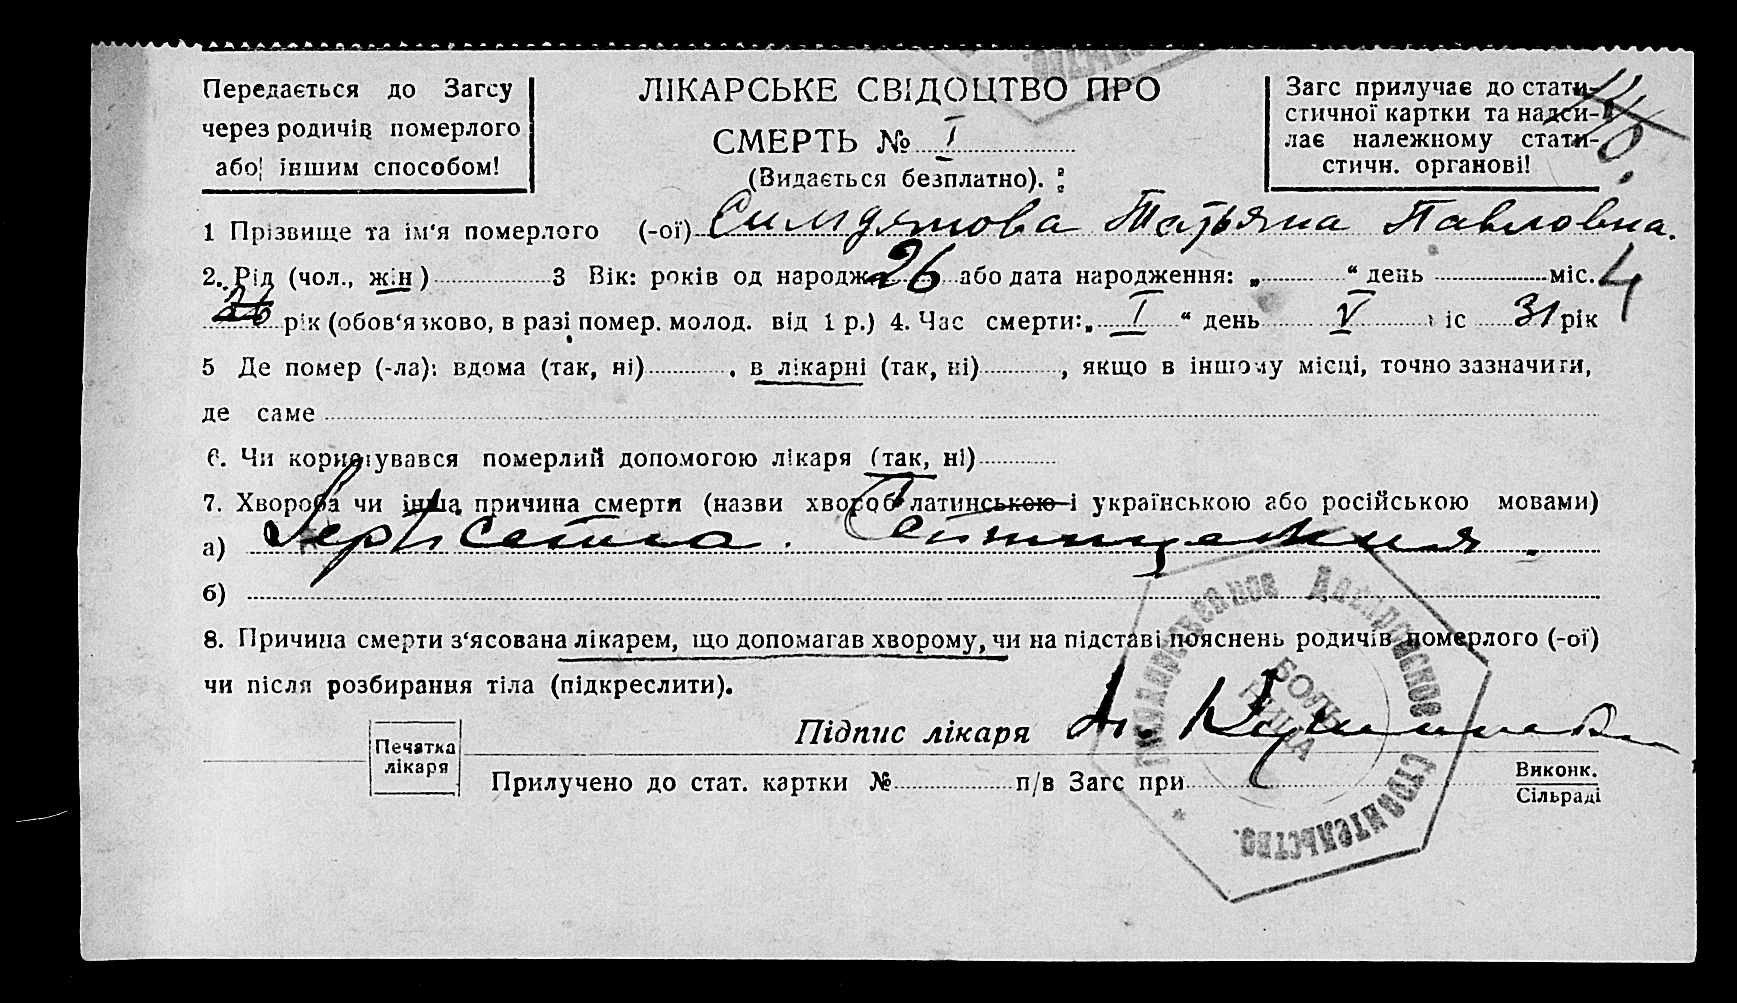 Передається до Загсу
через родичів померлого
або іншим способом!
ЛІКАРСЬКЕ СВІДОЦТВО ПРО
СМЕРТЬ № I
(Видається безплатно).
Загс прилучає до стати-
стичної картки та надси-
лає належному стати-
стичн. органові!
1 Прізвище та ім'я померлого (-ої) Татьяна Павловна.
2. Рід (чол., жін) 3 Вік: років од народж. 26 або дата народження: „ “ день міс. 4
26 рік (обов'язково, в разі помер. молод. від 1 р.) 4. Час смерти: „ I “ день V міс 31 рік
5 Де помер (-ла): вдома (так, ні) , в лікарні (так, ні) , якщо в іншому місці, точно зазначити,
де саме
6. Чи користувався померлий допомогою лікаря (так, ні)
7. Хвороба чи інша причина смерти (назви хвороб латинською і українською або російською мовами)
а) Septicemia. Септицемия.
б)
8. Причина смерти з'ясована лікарем, що допомагав хворому, чи на підставі пояснень родичів померлого (-ої)
чи після розбирання тіла (підкреслити).
Печатка
лікаря
Підпис лікаря
Прилучено до стат. картки № п/в Загс при
Виконк.
Сільраді
Днепровское строительство.
БОЛЬ
НИЦА